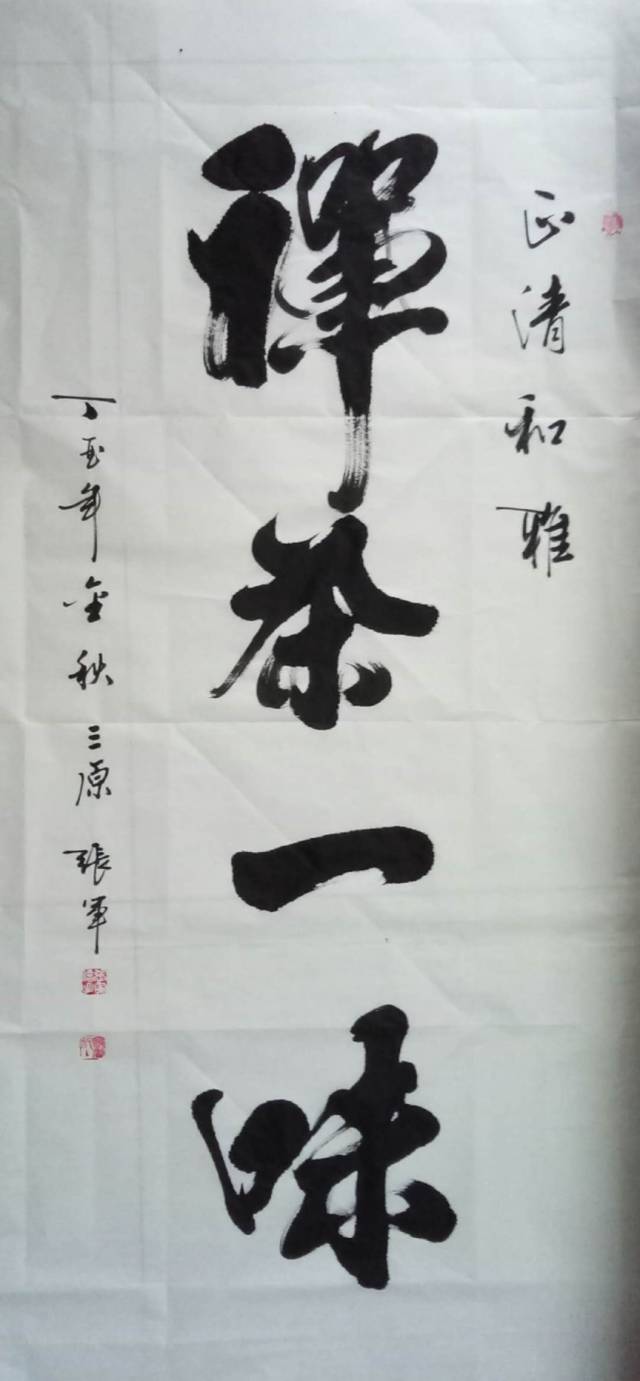 正清和雅
禪茶一味
丁酉年金秋三原張軍